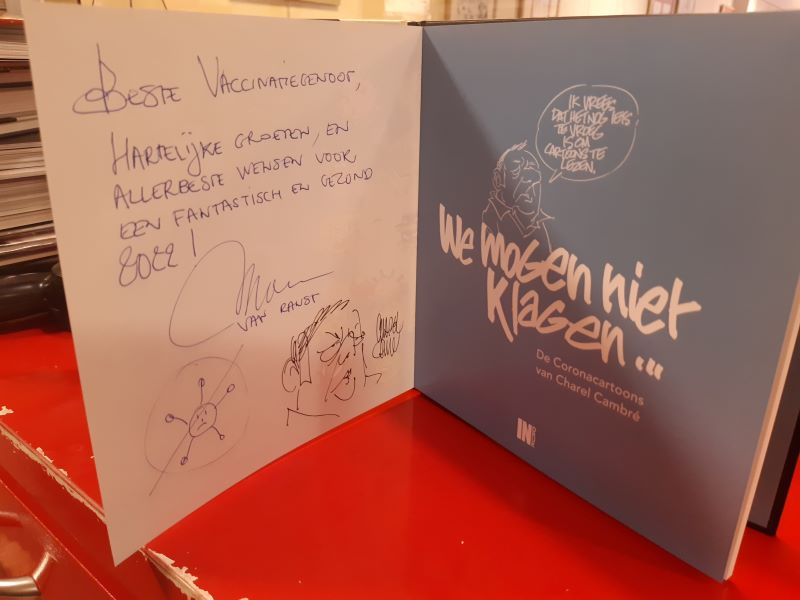 Beste Vaccinatiegenoot,
Hartelijke groeten, en
allerbeste wensen voor
een fantastisch en gezond
2022!
Van Ranst
Ik vrees
dat het nog iets
te vroeg
is om
cartoons te
lezen.
We mogen niet
klagen...
De Coronacartoons
van Charel Cambré
IN